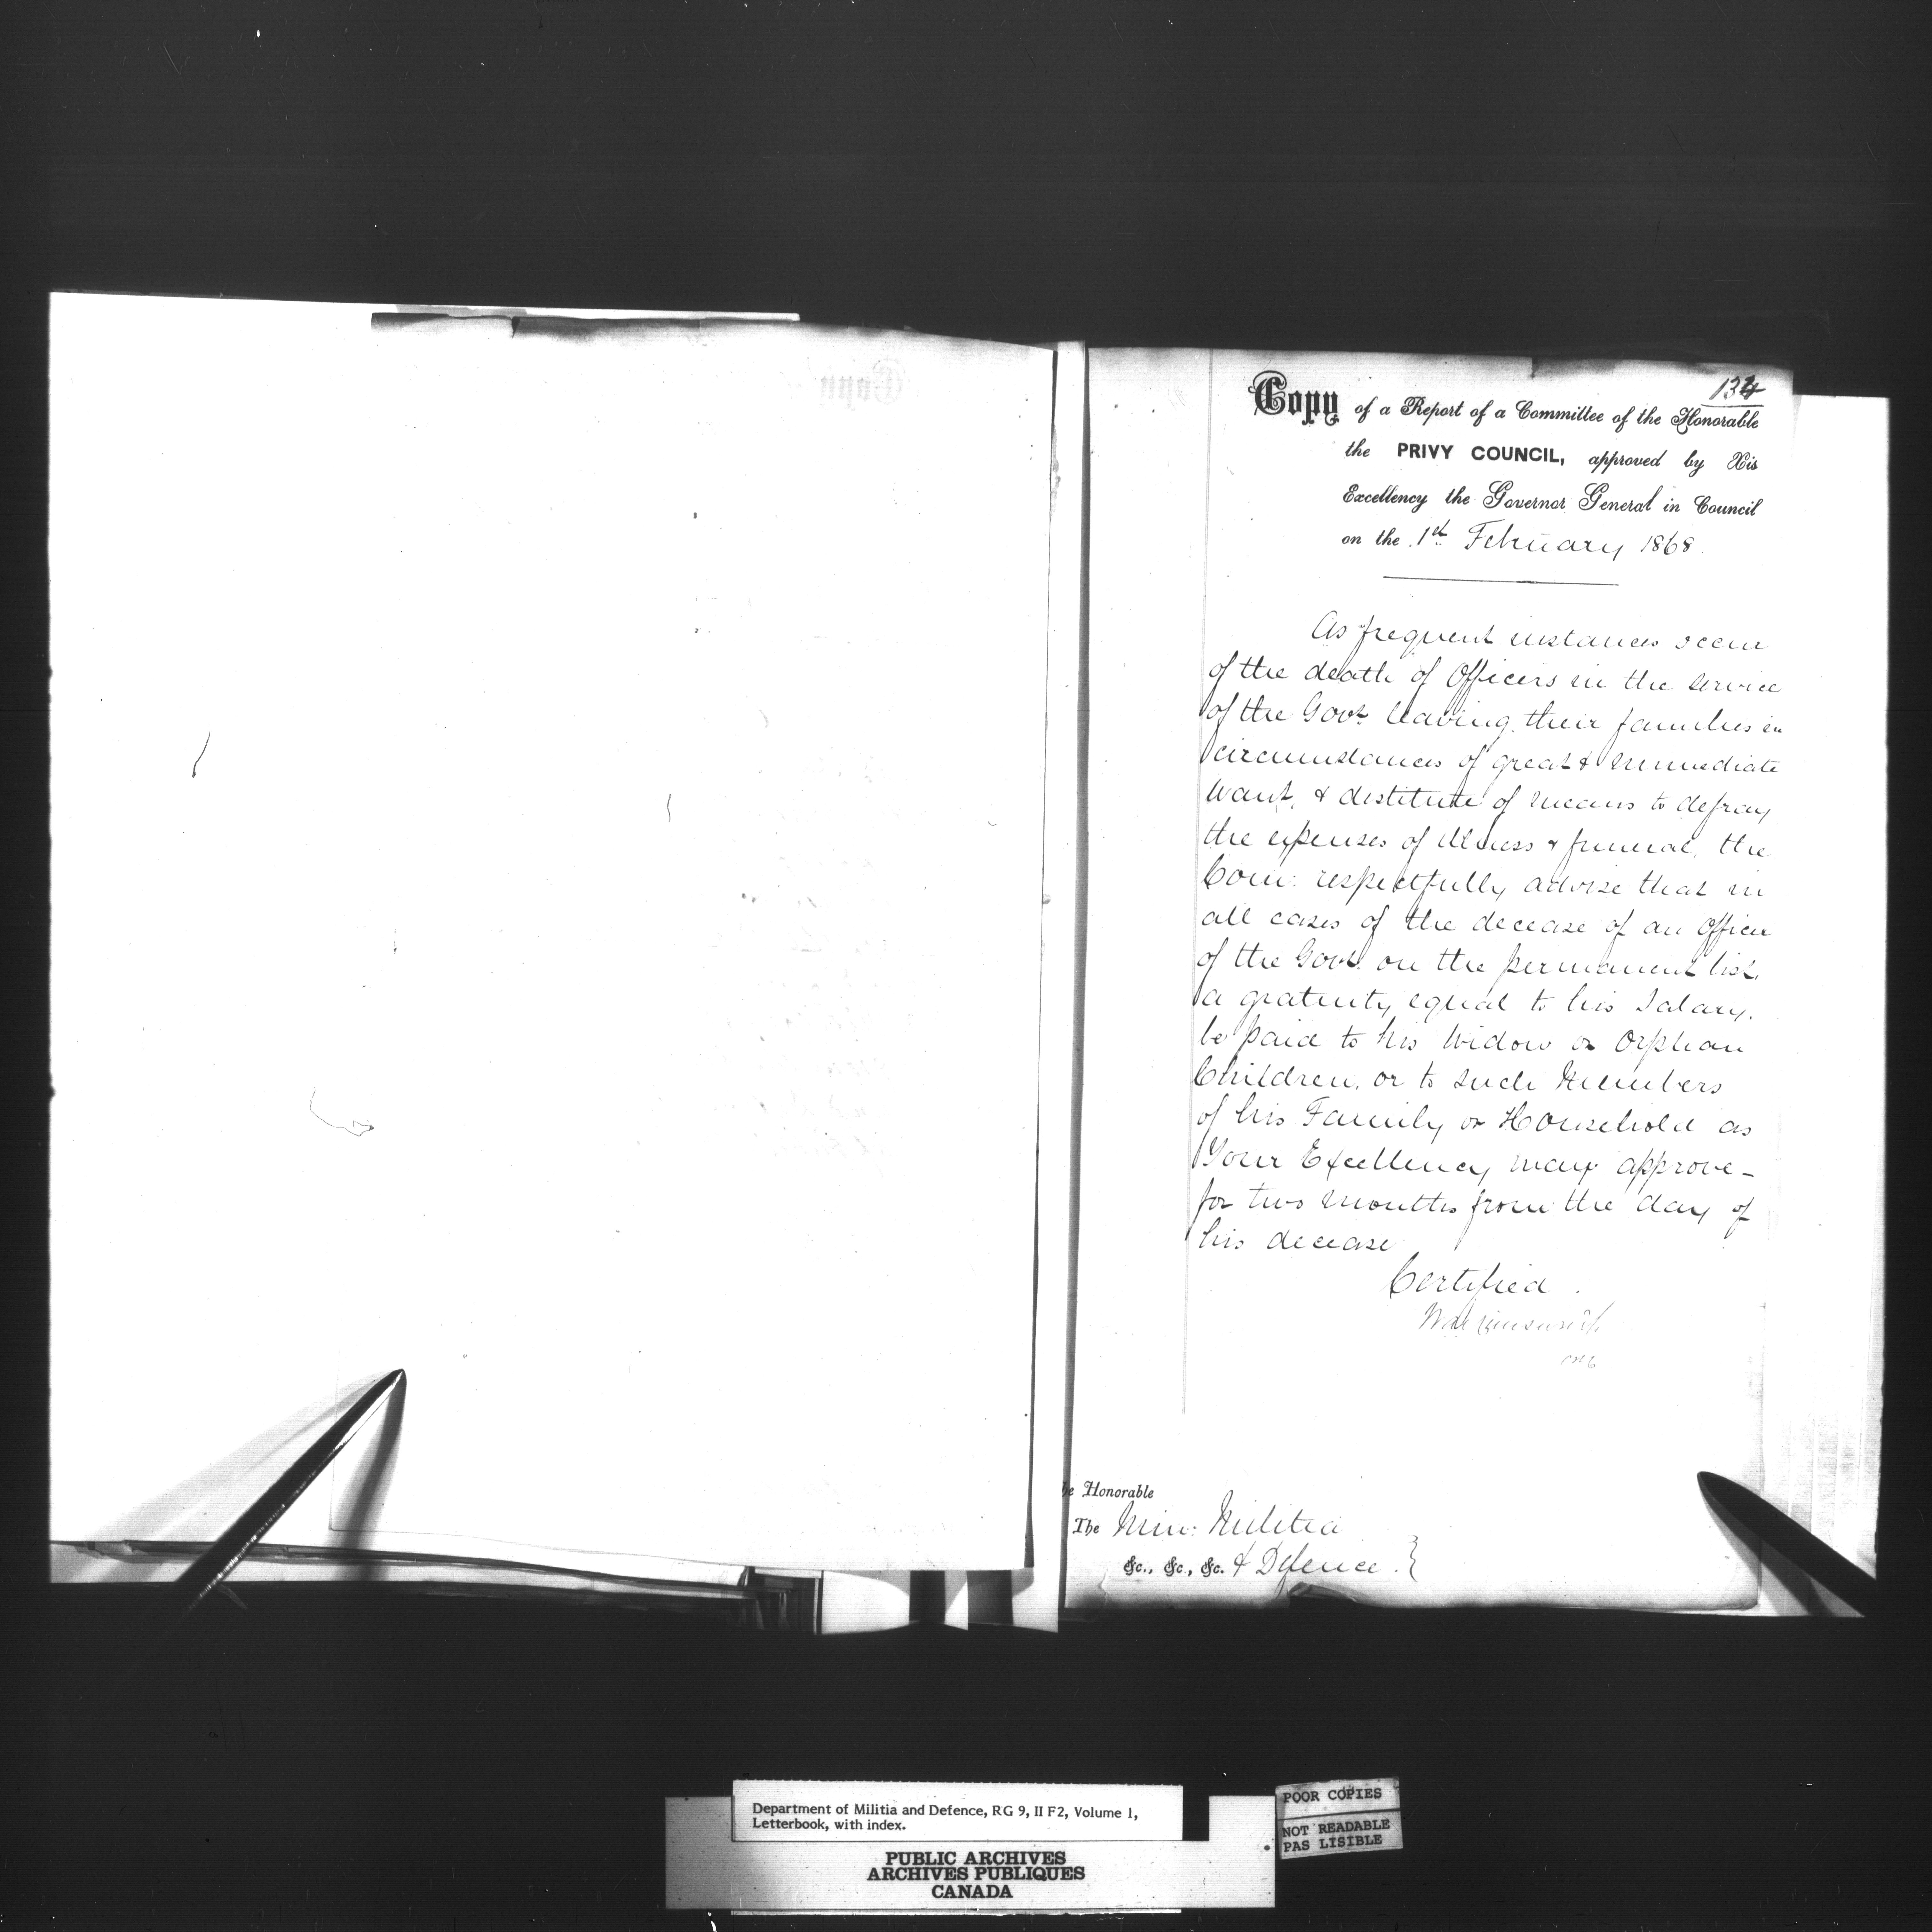 134
Copy of a Report of a Committee of the Honorable
the PRIVY COUNCIL, approved by His
Excellency the Governor General in Council
on the 1st February 1868.
As frequent instances occur
of the death of Officers in the service
of the Govt. leaving their families in
circumstances of great & immediate
want, & destitute of means to defray
the expenses of illness & funeral, the
Com: respectfully advise that in
all cases of the decease of an Officer
of the Govt. on the permanent list,
a gratuity equal to his Salary.
be paid to his Widow or Orphan
Children, or to such Members
of his Family or Household as
Your Excellency may approve -
for two months from the day of
his decease
Certified.
he Honorable
The Min: Militia
&c., &c., &c. & Defence.
Department of Militia and Defence, RG 9, II F2, Volume 1,
Letterbook, with index.
PUBLIC ARCHIVES
ARCHIVES PUBLIQUES
CANADA
POOR COPIES
NOT READABLE
PAS LISIBLE